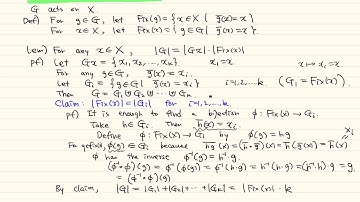 G acts on X
Def) For g ∈ G, let Fix(g) = {x ∈ X | g̅(x) = x}
For x ∈ X, let Fix(x) = {g ∈ G | g̅(x) = x}
Lem) For any x ∈ X, |G| = |Gx|·|Fix(x)|
pf) Let Gx = {x₁, x₂, ..., xₖ} x₁ = x x ↦ xᵢ = x
For any g ∈ G, g̅(x) = xᵢ
Let Gᵢ = {g ∈ G | g̅(x) = xᵢ} i=1,2,...,k. (G₁ = Fix(x))
Then G = G₁ ⊎ G₂ ⊎ ... ⊎ Gₖ
Claim: |Fix(x)| = |Gᵢ| for i=1,2,...,k
pf) It is enough to find a bijection ϕ: Fix(x) → Gᵢ.
Take h ∈ Gᵢ. Then h̅(x) = xᵢ.
Define ϕ: Fix(x) → Gᵢ by ϕ(g) = hg xᵢ
For g ∈ Fix(x), ϕ(g) ∈ Gᵢ because h̅g̅(x) = h̅(g̅(x)) = h̅(x)
ϕ has the inverse ϕ⁻¹(g) = h⁻¹·g.
(ϕ⁻¹∘ϕ)(g) = ϕ⁻¹(ϕ(g)) = ϕ⁻¹(h·g) = h⁻¹(h·g) = (h⁻¹·h)·g = g
= (ϕ∘ϕ⁻¹)(g)
By claim, |G| = |G₁| + |G₂| + ... + |Gₖ| = |Fix(x)|·k